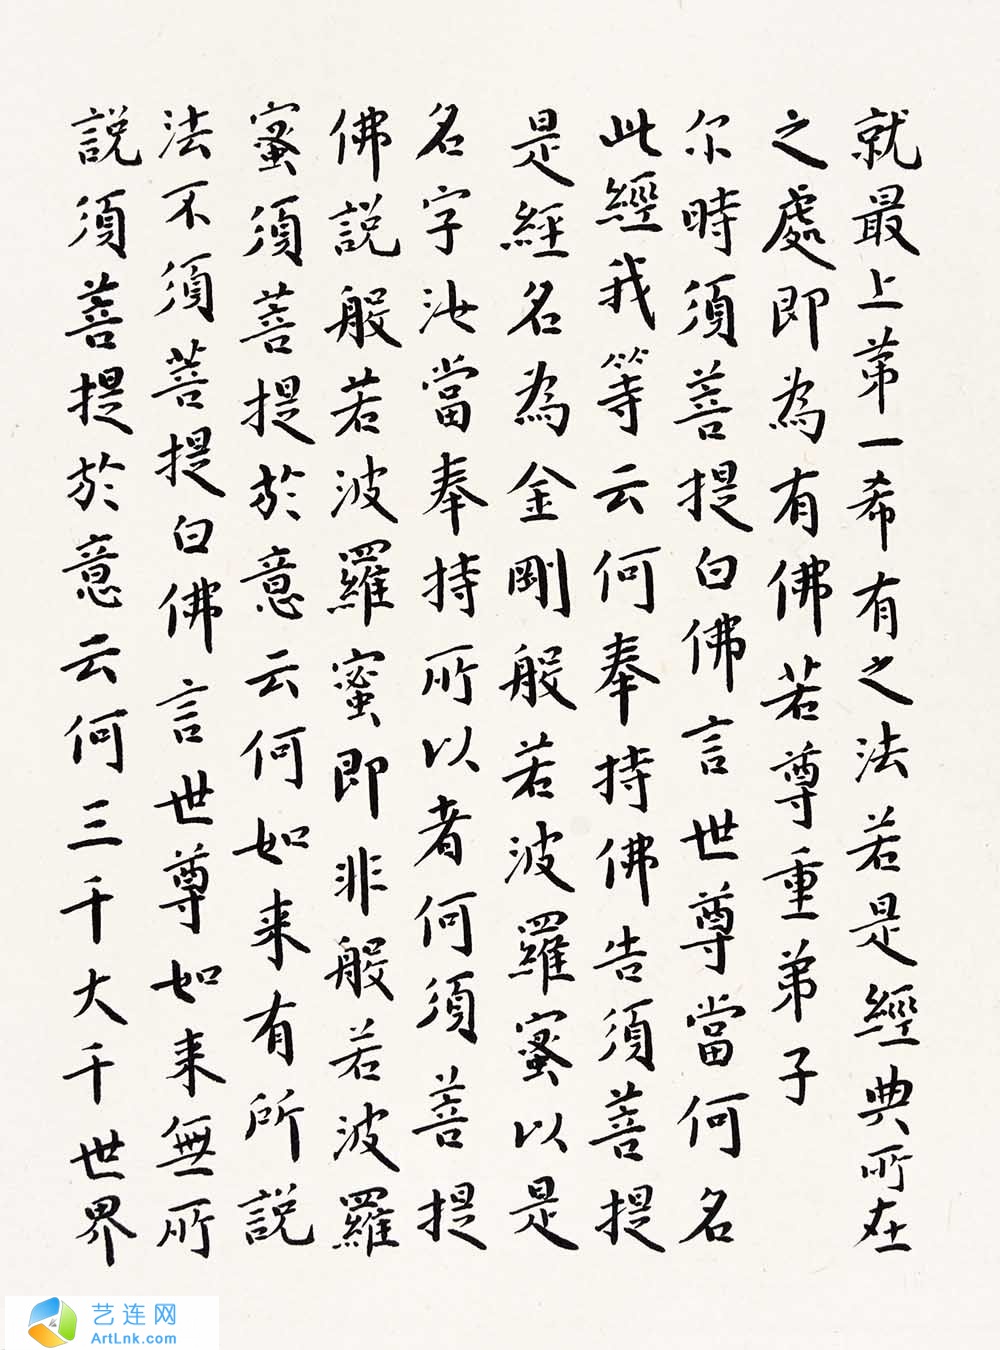 就最上第一希有之法若是經典所在
之處即為有佛若尊重弟子
尔時須菩提白佛言世尊當何名
此經我等云何奉持佛告須菩提
是經名為金剛般若波羅蜜以是
名字汝當奉持所以者何須菩提
佛說般若波羅蜜即非般若波羅
蜜須菩提於意云何如来有所說
法不須菩提白佛言世尊如来無所
說須菩提於意云何三千大千世界
艺连网
ArtLnk.com